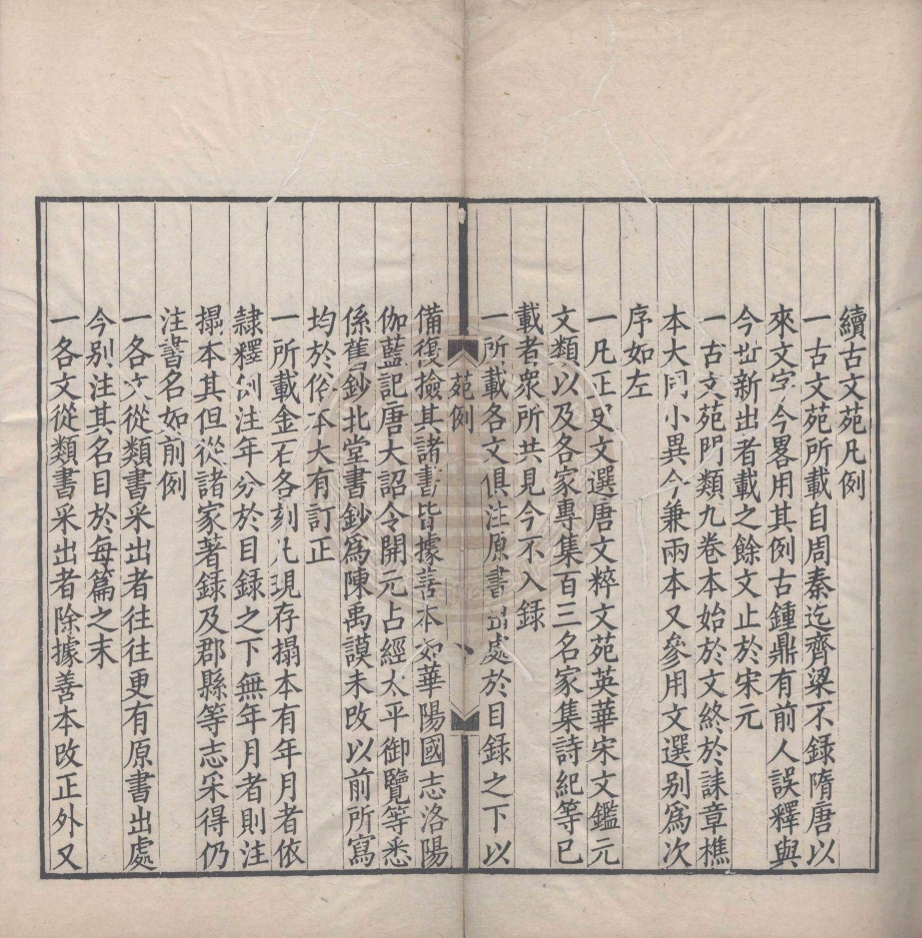 續古文苑凡例
一古文苑所載自周秦迄齊梁不錄隋唐以
來文字今畧用其例古鍾鼎有前人誤釋與
今世新出者載之餘文止於宋元
一古文苑門類九卷本始於文終於誄章樵
本大同小異今兼兩本又參用文選别爲次
序如左
一凡正史文選唐文粹文苑英華宋文鑑元
文類以及各家專集百三名家集詩紀等已
載者衆所共見今不入録
一所載各文俱注原書出處於目録之下以
苑例
備復檢其諸書皆據善本如華陽國志洛陽
伽藍記唐大詔令開元占經太平御覽等悉
係舊鈔北堂書鈔爲陳禹謨未改以前所寫
均於俗本大有訂正
一所載金石各刻凡現存搨本有年月者依
隸釋例注年分於目録之下無年月者則注
搨本其但從諸家著録及郡縣等志采得仍
注書名如前例
一各文從類書采出者往往更有原書出處
今别注其名目於每篇之末
一各文從類書采出者除據善本改正外又